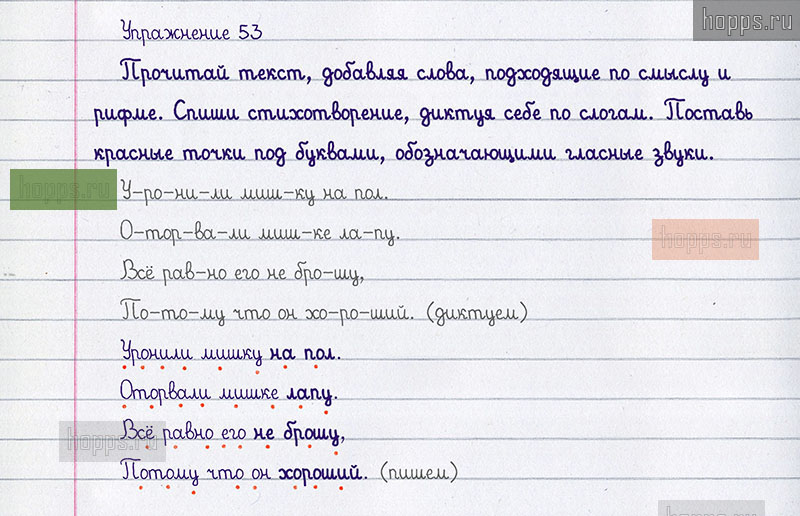 hopps.ru
Упражнение 53
Прочитай текст, добавляя слова, подходящие по смыслу и
рифме. Спиши стихотворение, диктуя себе по слогам. Поставь
красные точки под буквами, обозначающими гласные звуки.
hopps.ru
У-ро-ни-ли миш-ку на пол.
О-тор-ва-ли миш-ке ла-пу.
hopps.ru
Всё рав-но его не бро-шу,
По-то-му что он хо-ро-ший. (диктуем)
Уронили мишку на пол.
Оторвали мишке лапу.
Всё равно его не брошу,
hopps.ru
Потому что он хороший. (пишем)
hopps.ru